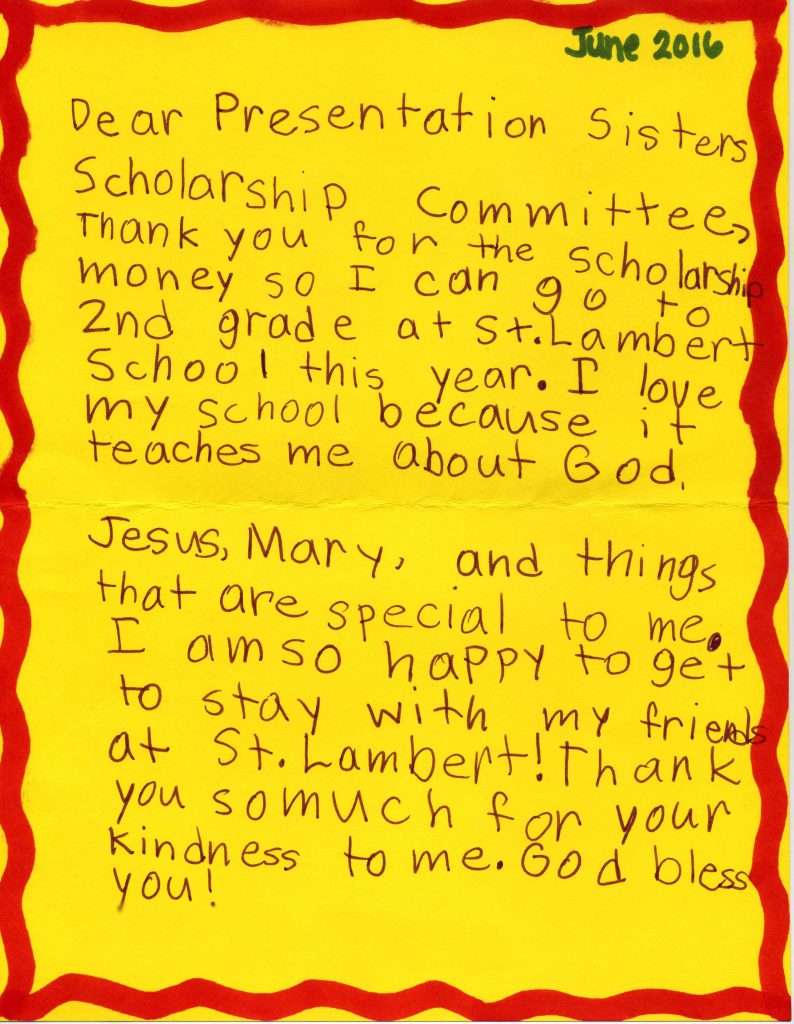 June 2016
Dear Presentation Sisters
Scholarship Committee,
Thank you for the scholarship
money so I can go to
2nd grade at St. Lambert
School this year. I love
my school because it
teaches me about God,
Jesus, Mary, and things
that are special to me.
I am so happy to get
to stay with my friends
at St. Lambert! Thank
you so much for your
kindness to me. God bless
you!